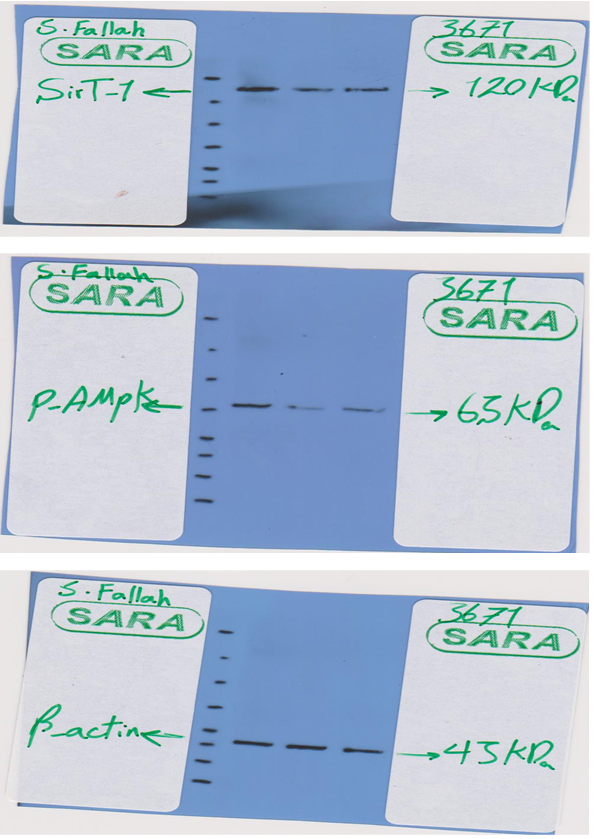 S.Fallah
SARA
SirT-1 ←
3671
SARA
→ 120KDa
S.Fallah
SARA
P-AMPK ←
3671
SARA
→ 63KDa
S.Fallah
SARA
β-actin ←
3671
SARA
→ 43KDa